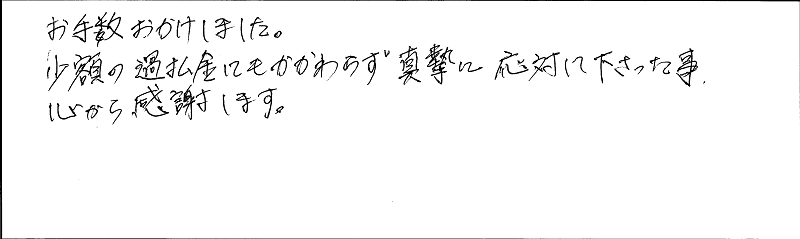 お手数おかけしました。
少額の過払金にもかかわらず真摯に応対して下さった事、
心から感謝します。